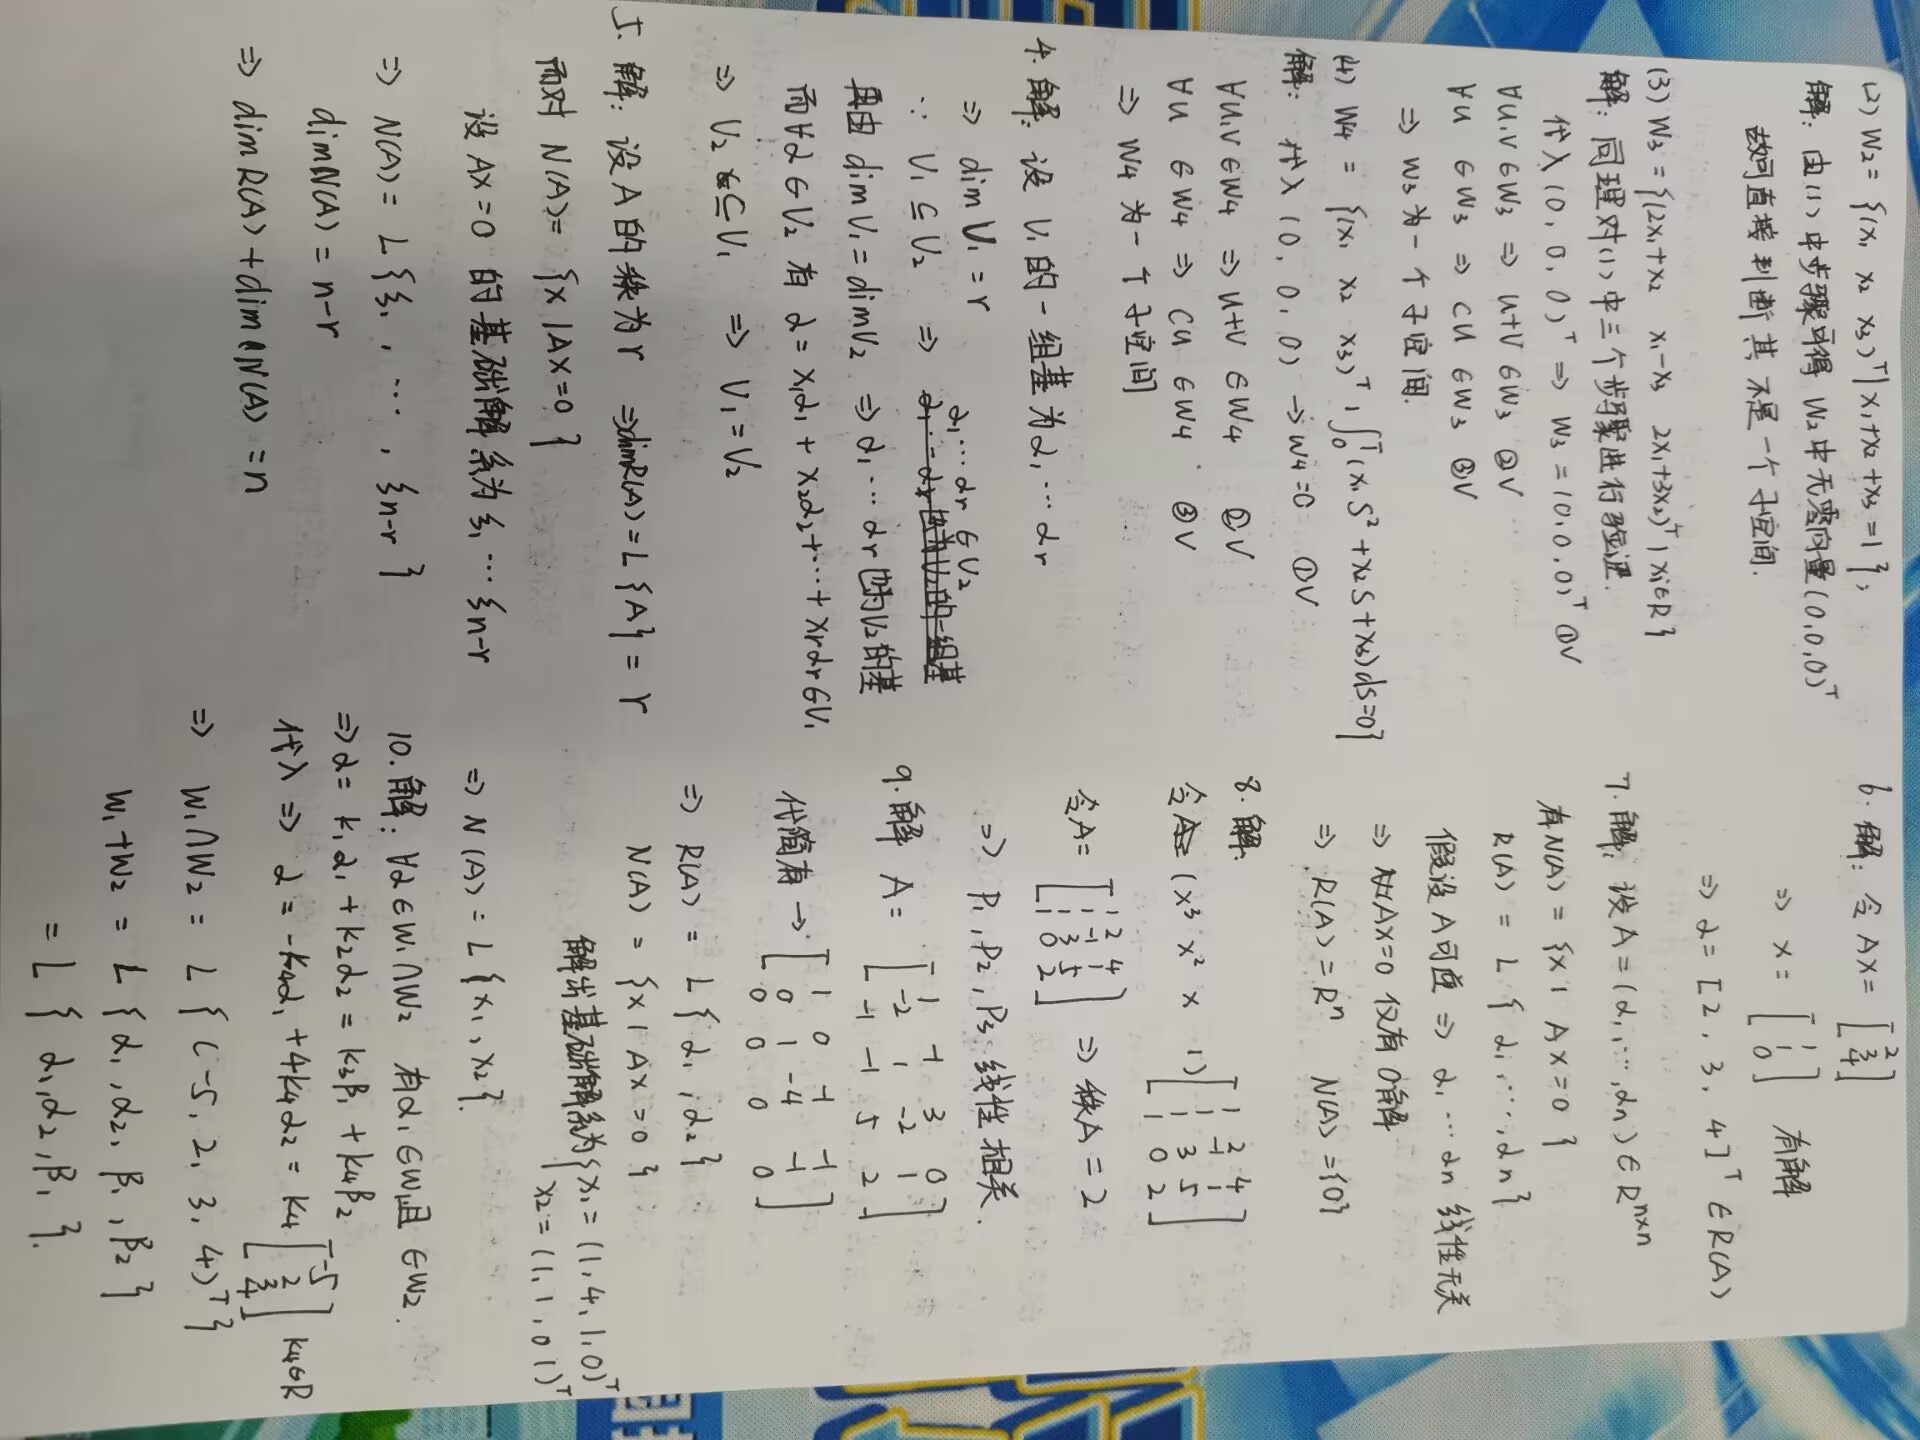 (2) W₂ = {(x₁ x₂ x₃)ᵀ | x₁+x₂+x₃=1},
解: 由(1)中步骤可得 W₂中无零向量(0,0,0)ᵀ
故可直接判断其不是一个子空间.
(3) W₃ = {(2x₁+x₂ x₁-x₃ 2x₁+3x₂)ᵀ | xᵢ∈R}
解: 同理对(1)中三个步骤进行验证.
代入(0,0,0)ᵀ ⇒ W₃=(0,0,0)ᵀ ①√
∀u,v∈W₃ ⇒ u+v∈W₃ ②√
∀u∈W₃ ⇒ cu∈W₃ ③√
⇒ W₃为一个子空间.
(4) W₄ = {(x₁ x₂ x₃)ᵀ | ∫₀¹(x₁s²+x₂s+x₃)ds=0}
解: 代入(0,0,0) → W₄=0 ①√
∀u,v∈W₄ ⇒ u+v∈W₄ ②√
∀u∈W₄ ⇒ cu∈W₄. ③√
⇒ W₄为一个子空间
4.解: 设V₁的一组基为α₁…αᵣ
⇒ dimV₁=r
∵ V₁⊆V₂ ⇒ α₁…αᵣ∈V₂
再由dimV₁=dimV₂ ⇒ α₁…αᵣ也为V₂的基
而∀α∈V₂ 有 α=x₁α₁+x₂α₂+…+xᵣαᵣ∈V₁
⇒ V₂⊆V₁ ⇒ V₁=V₂
5.解: 设A的秩为r ⇒dimR(A)=L{A}=r
而对N(A)={x|Ax=0}
设Ax=0的基础解系为ξ₁…ξn-r
⇒ N(A)=L{ξ₁,…,ξn-r}
dimN(A)=n-r
⇒ dimR(A)+dim(N(A)=n
6.解: 令Ax=[2 3 4]
⇒ x=[1 1 0] 有解
⇒ α=[2,3,4]ᵀ∈R(A)
7.解: 设A=(α₁,…,αn)∈Rⁿˣⁿ
有N(A)={x|Ax=0}
R(A)=L{α₁,…,αn}
假设A可逆 ⇒ α₁…αn线性无关
⇒ Ax=0仅有0解
⇒ R(A)=Rⁿ N(A)={0}
8.解:
(x³ x² x 1)[1 2 4
1 -1 1
1 3 5
1 0 2]
令A=[1 2 4
1 -1 1
1 3 5
1 0 2] ⇒ 秩A=2
⇒ P₁,P₂,P₃线性相关.
9.解 A=[1 -1 3 0
-2 1 -2 1
-1 -1 5 2]
代简有→[1 0 -1 -1
0 1 -4 -1
0 0 0 0]
⇒ R(A)=L{α₁,α₂}
N(A)={x|Ax=0}
解出基础解系为{x₁=(1,4,1,0)ᵀ
x₂=(1,1,0,1)ᵀ
⇒N(A)=L{x₁,x₂}.
10.解: ∀α∈W₁∩W₂ 有α₁∈W₁且∈W₂.
⇒α=k₁α₁+k₂α₂=k₃β₁+k₄β₂
代入⇒ α=-k₄α₁+4k₄α₂=k₄[-5 2 3 4] k₄∈R
⇒ W₁∩W₂=L{(-5,2,3,4)ᵀ}
W₁+W₂=L{α₁,α₂,β₁,β₂}
=L{α₁,α₂,β₁}.